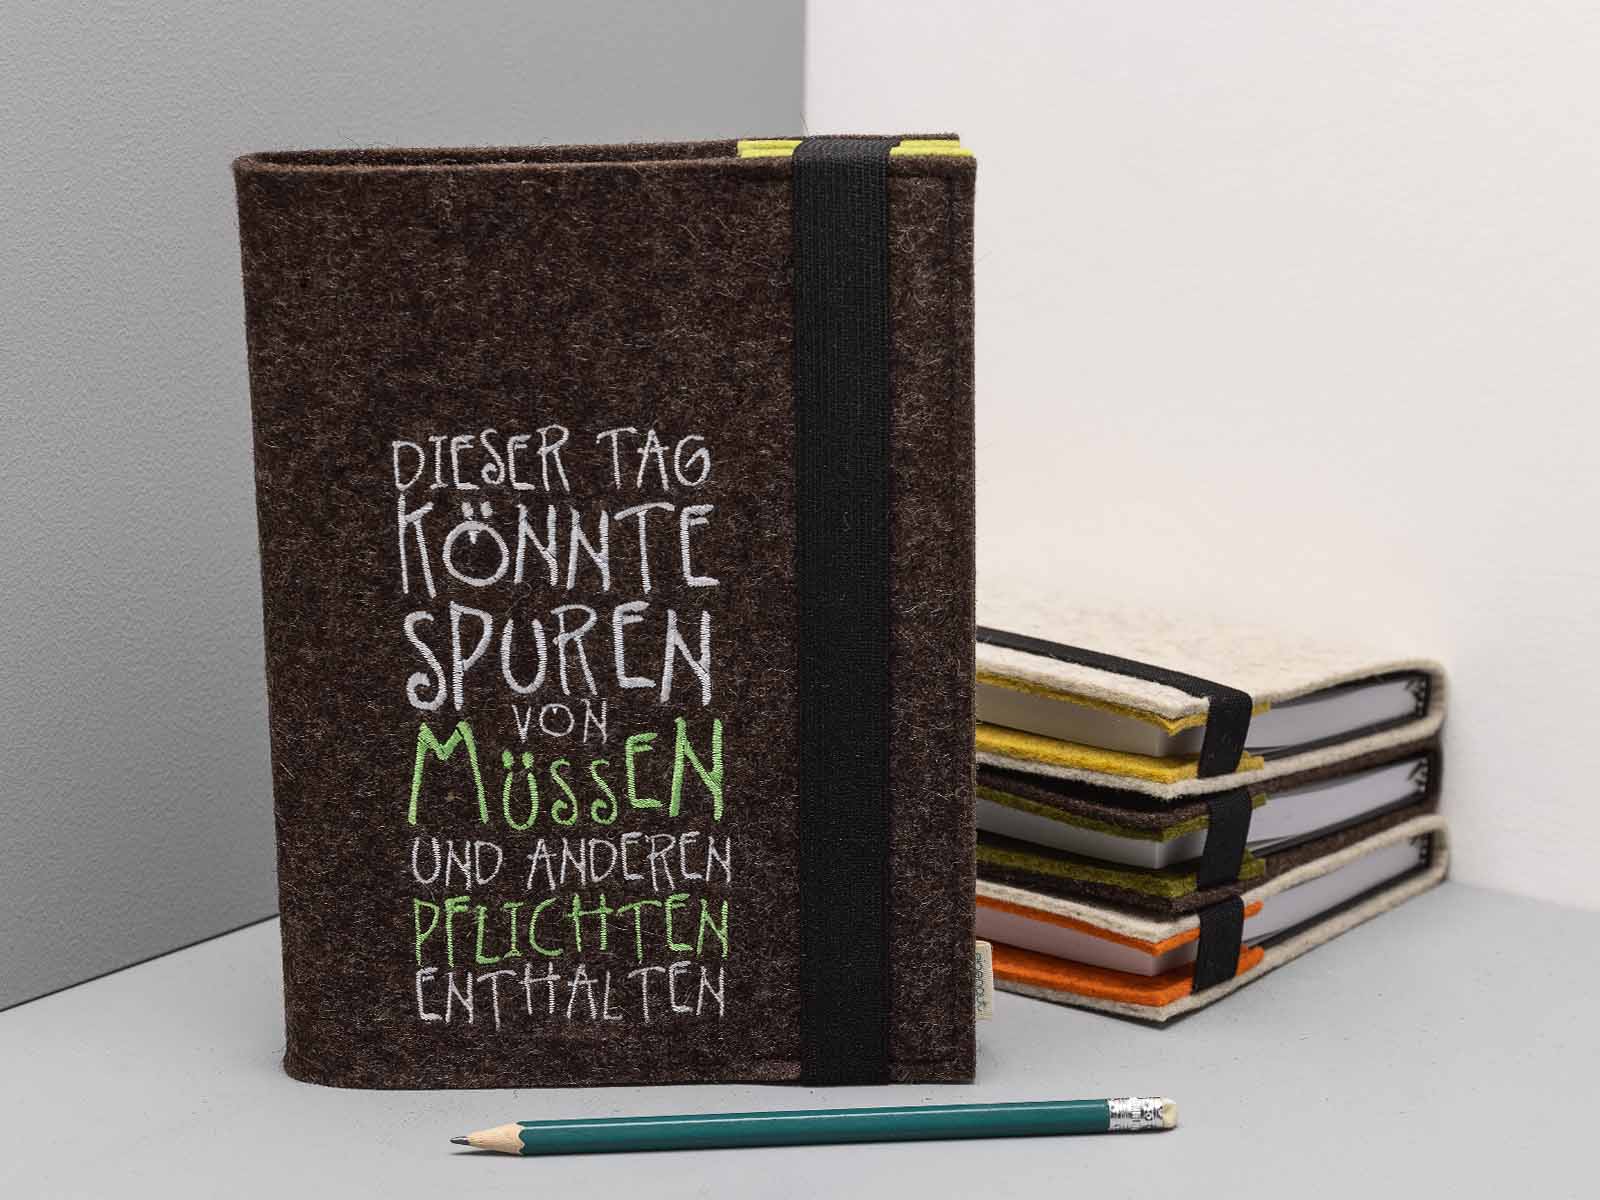 DIESER TAG
KÖNNTE
SPUREN
VON
MÜSSEN
UND ANDEREN
PFLICHTEN
ENTHALTEN